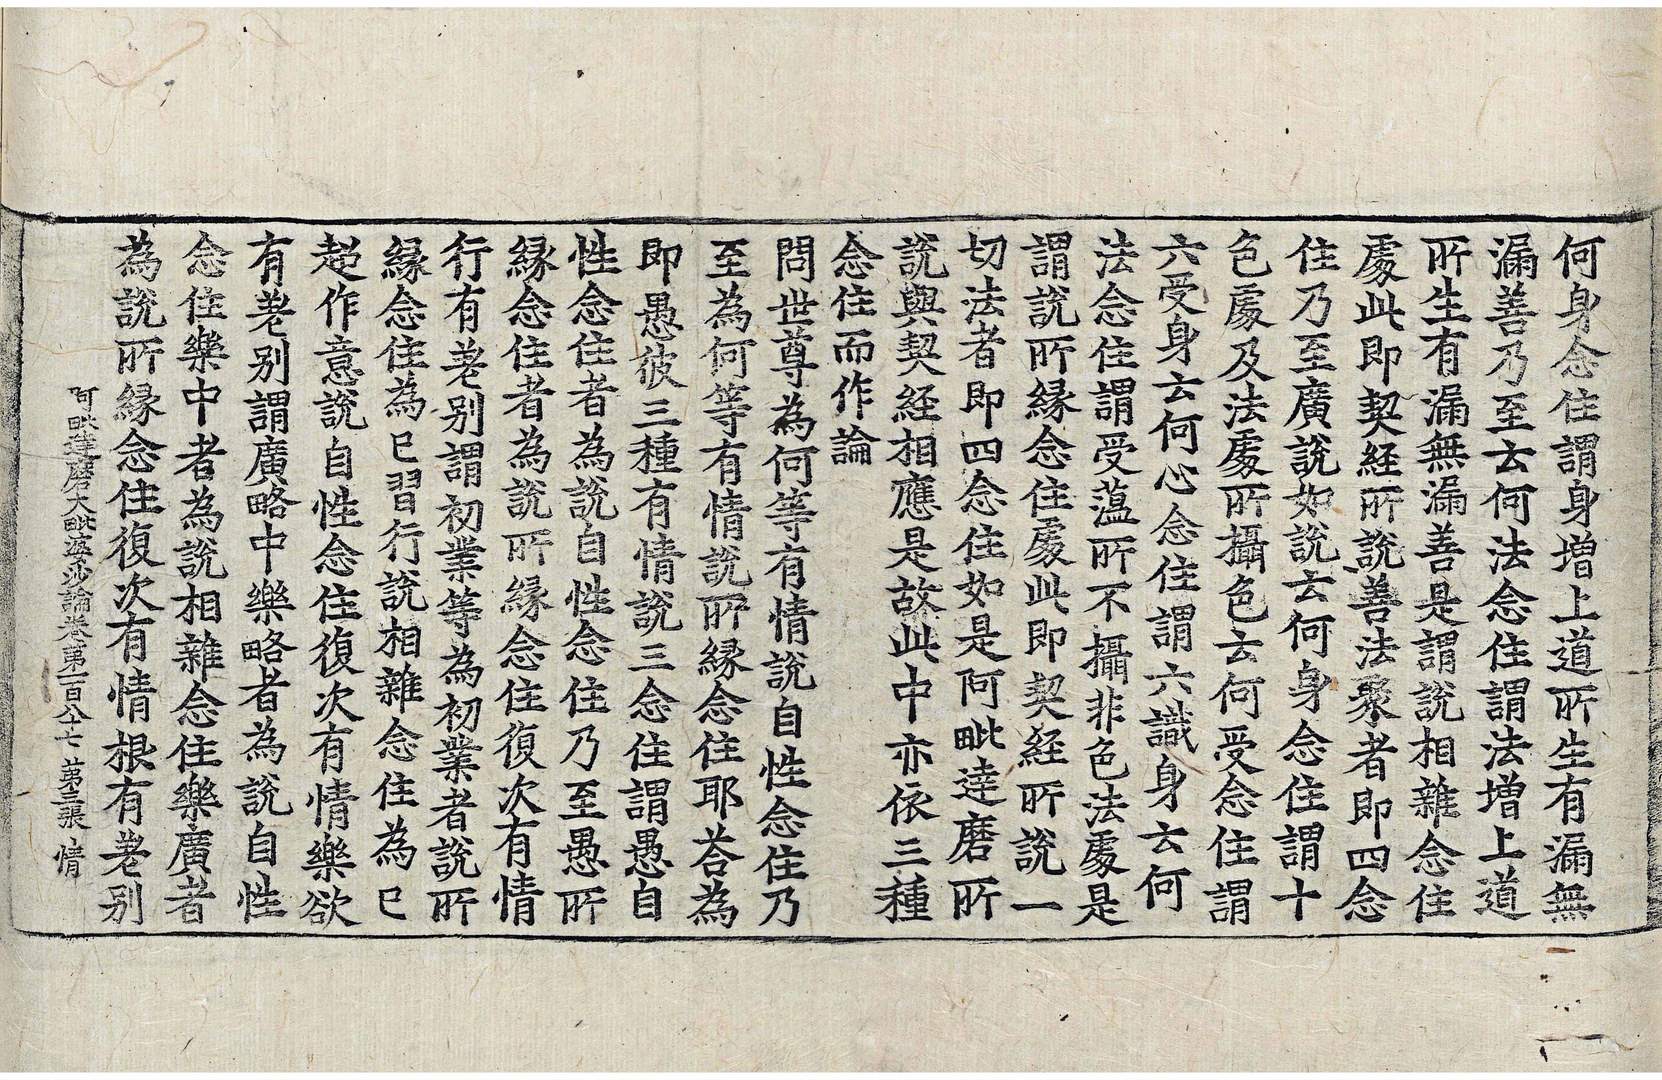 何身念住謂身增上道所生有漏無
漏善乃至云何法念住謂法增上道
所生有漏無漏善是謂說相雜念住
處此即契經所說善法聚者即四念
住乃至廣說如說云何身念住謂十
色處及法處所攝色云何受念住謂
六受身云何心念住謂六識身云何
法念住謂受蘊所不攝非色法處是
謂說所緣念住處此即契經所說一
切法者即四念住如是阿毗達磨所
說與契經相應是故此中亦依三種
念住而作論
問世尊為何等有情說自性念住乃
至為何等有情說所緣念住耶荅為
即愚彼三種有情說三念住謂愚自
性念住者為說自性念住乃至愚所
緣念住者為說所緣念住復次有情
行有差別謂初業等為初業者說所
緣念住為已習行說相雜念住為已
超作意說自性念住復次有情樂欲
有差別謂廣略中樂略者為說自性
念住樂中者為說相雜念住樂廣者
為說所緣念住復次有情根有差別
阿毗達磨大毗婆沙論卷第一百八十七 第三張 情